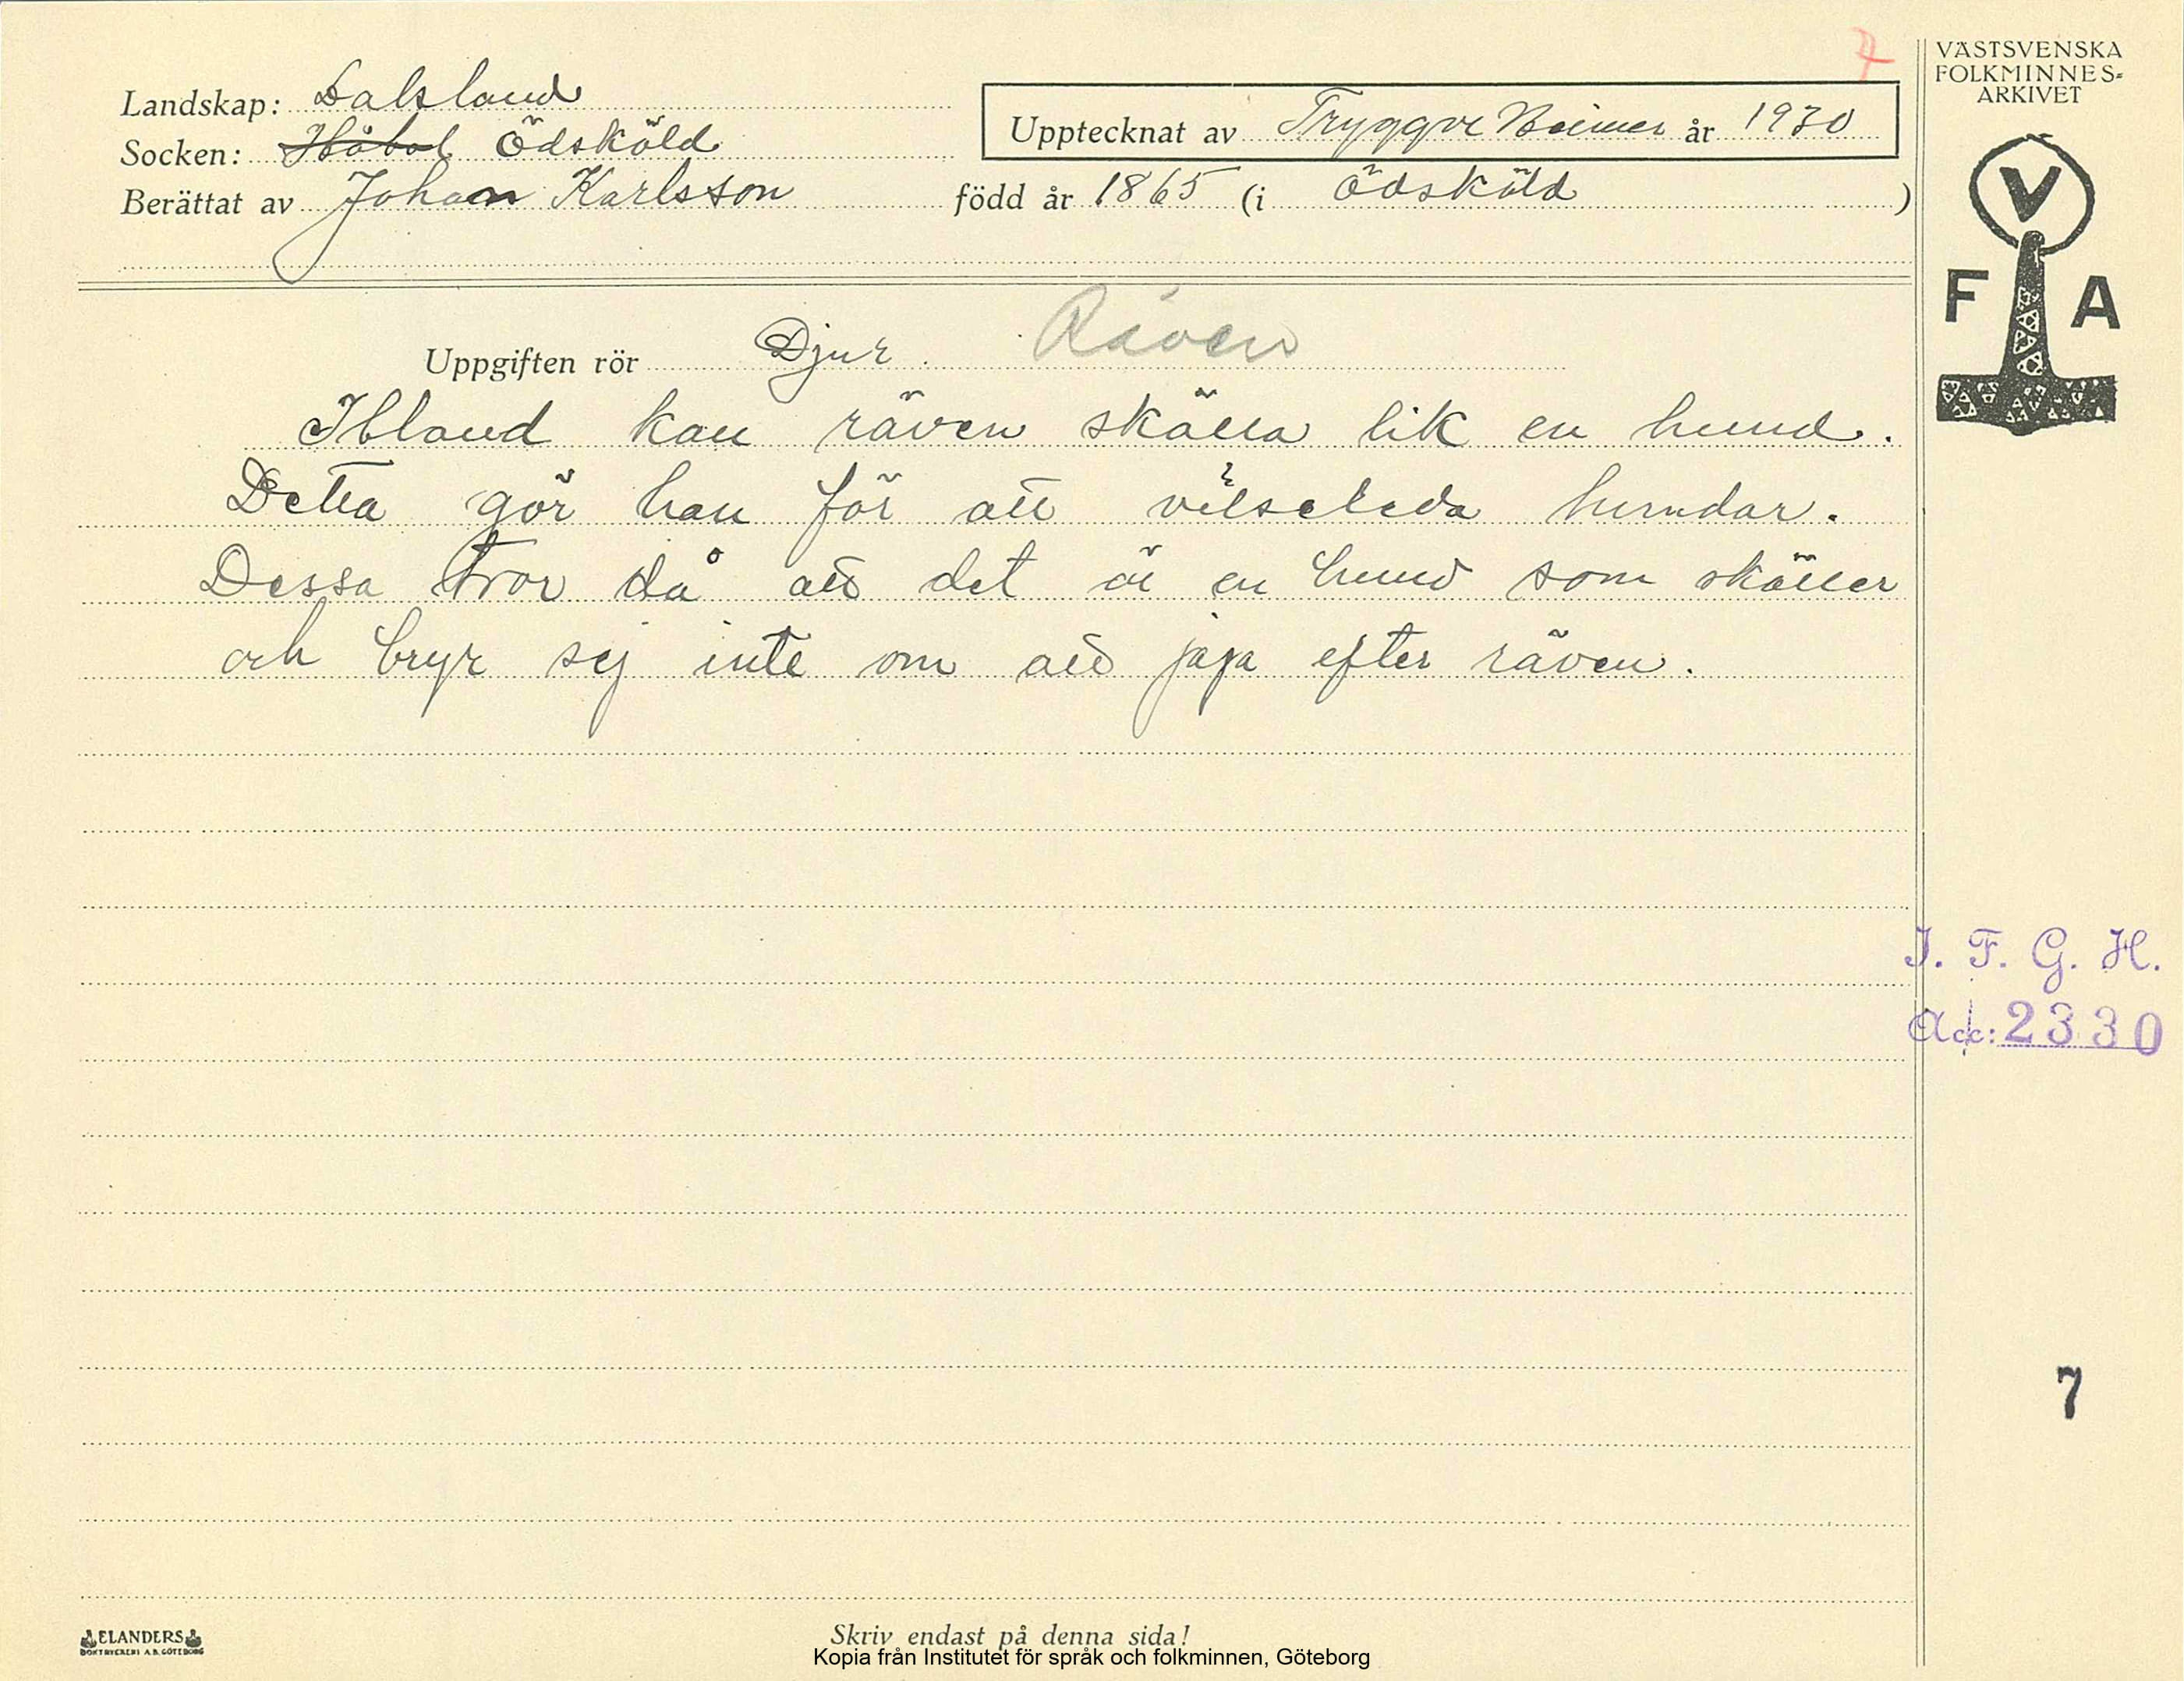 7
VÄSTSVENSKA
FOLKMINNES-
ARKIVET
Landskap: Dalsland
Socken: Håbol Ödsköld
Upptecknat av Tryggve år 1930
Berättat av Johan Karlsson född år 1865 (i Ödsköld )
V
F A
Uppgiften rör Djur. Räven
Ibland kan räven skälla lik en hund.
Detta gör han för att vilseleda hundar.
Dessa tror då att det är en hund som skäller
och bryr sej inte om att jaga efter räven.
I. F. G. H.
Acc: 2330
7
ELANDERS
BOKTRYCKERI A.B. GÖTEBORG
Skriv endast på denna sida!
Kopia från Institutet för språk och folkminnen, Göteborg